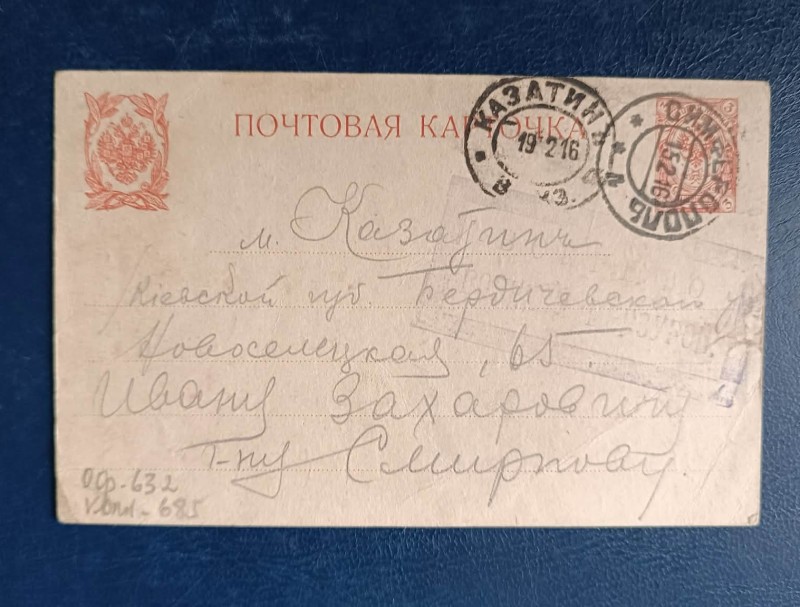 ПОЧТОВАЯ КАРТОЧКА
КАЗАТИНЪ
19 2 16
СИМФЕРОПОЛЬ
15 2 16
3
3
м. Казатинъ
Кіевской губ. Бердичевскаго у.
Новоселецкая, 65
Ивану Захаровичу
Г-ну Смирнову.
632
685